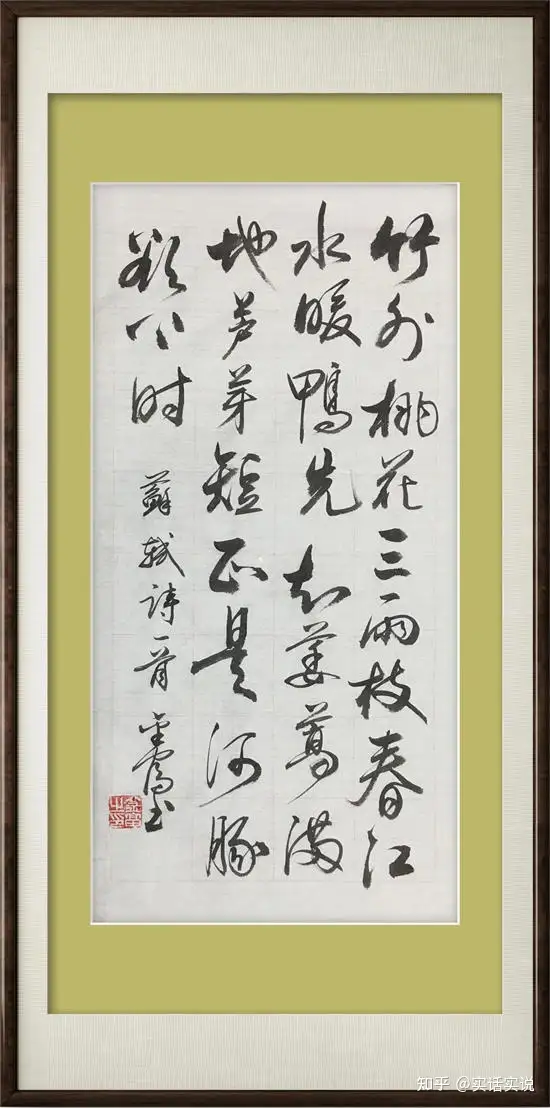 竹外桃花三兩枝春江
水暖鴨先知蒌蒿满
地芦芽短正是河豚
欲上时
蘇轼詩一首 书
知乎 @实话实说